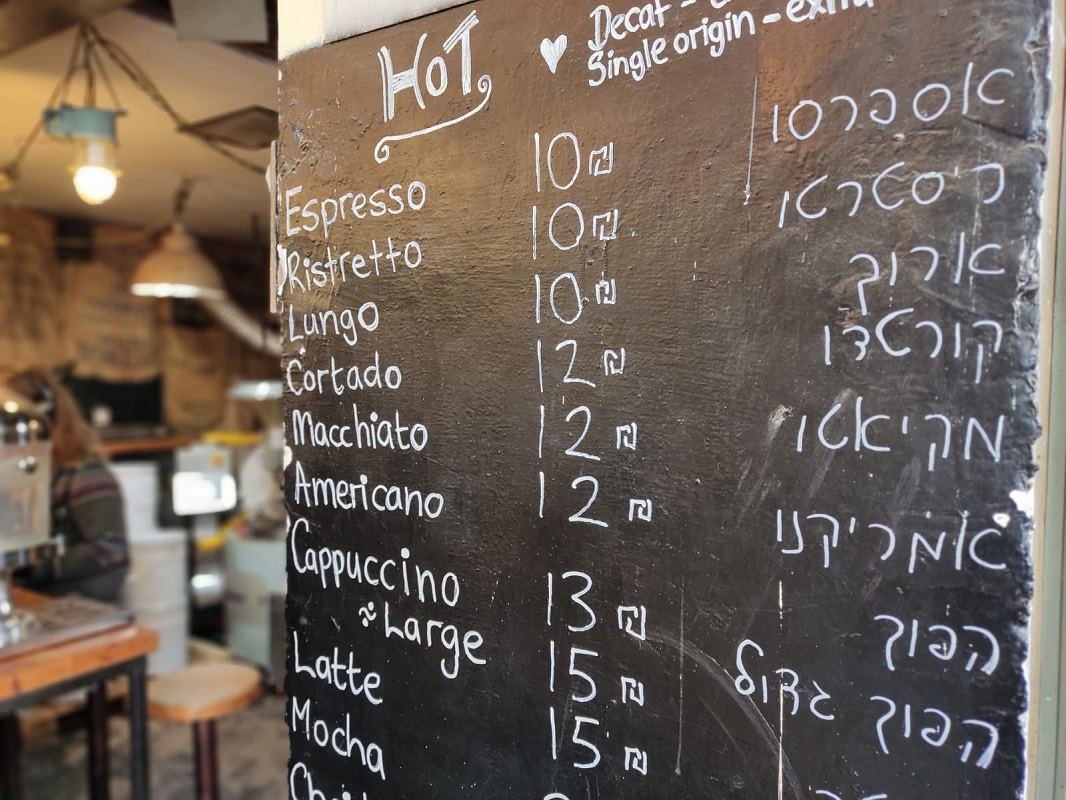 HOT
♥ Decaf -
Single origin - extra
Espresso 10 ₪ אספרסו
Ristretto 10 ₪ ריסטרטו
Lungo 10 ₪ ארוך
Cortado 12 ₪ קורטדו
Macchiato 12 ₪ מקיאטו
Americano 12 ₪ אמריקנו
Cappuccino 13 ₪ הפוך
~ Large 15 ₪ הפוך גדול
Latte 15 ₪
Mocha